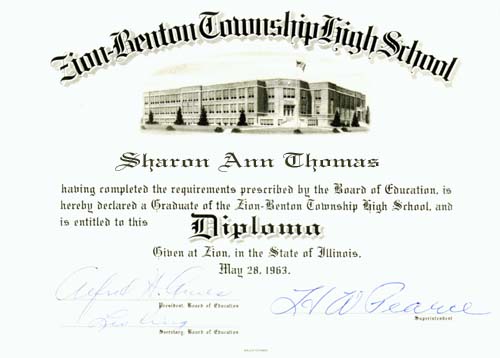 Zion-Benton Township High School
Sharon Ann Thomas
having completed the requirements prescribed by the Board of Education, is
hereby declared a Graduate of the Zion-Benton Township High School, and
is entitled to this Diploma
Given at Zion, in the State of Illinois,
May 28, 1963.
Alfred H.
President, Board of Education
H W Pearce
Superintendent
Secretary, Board of Education